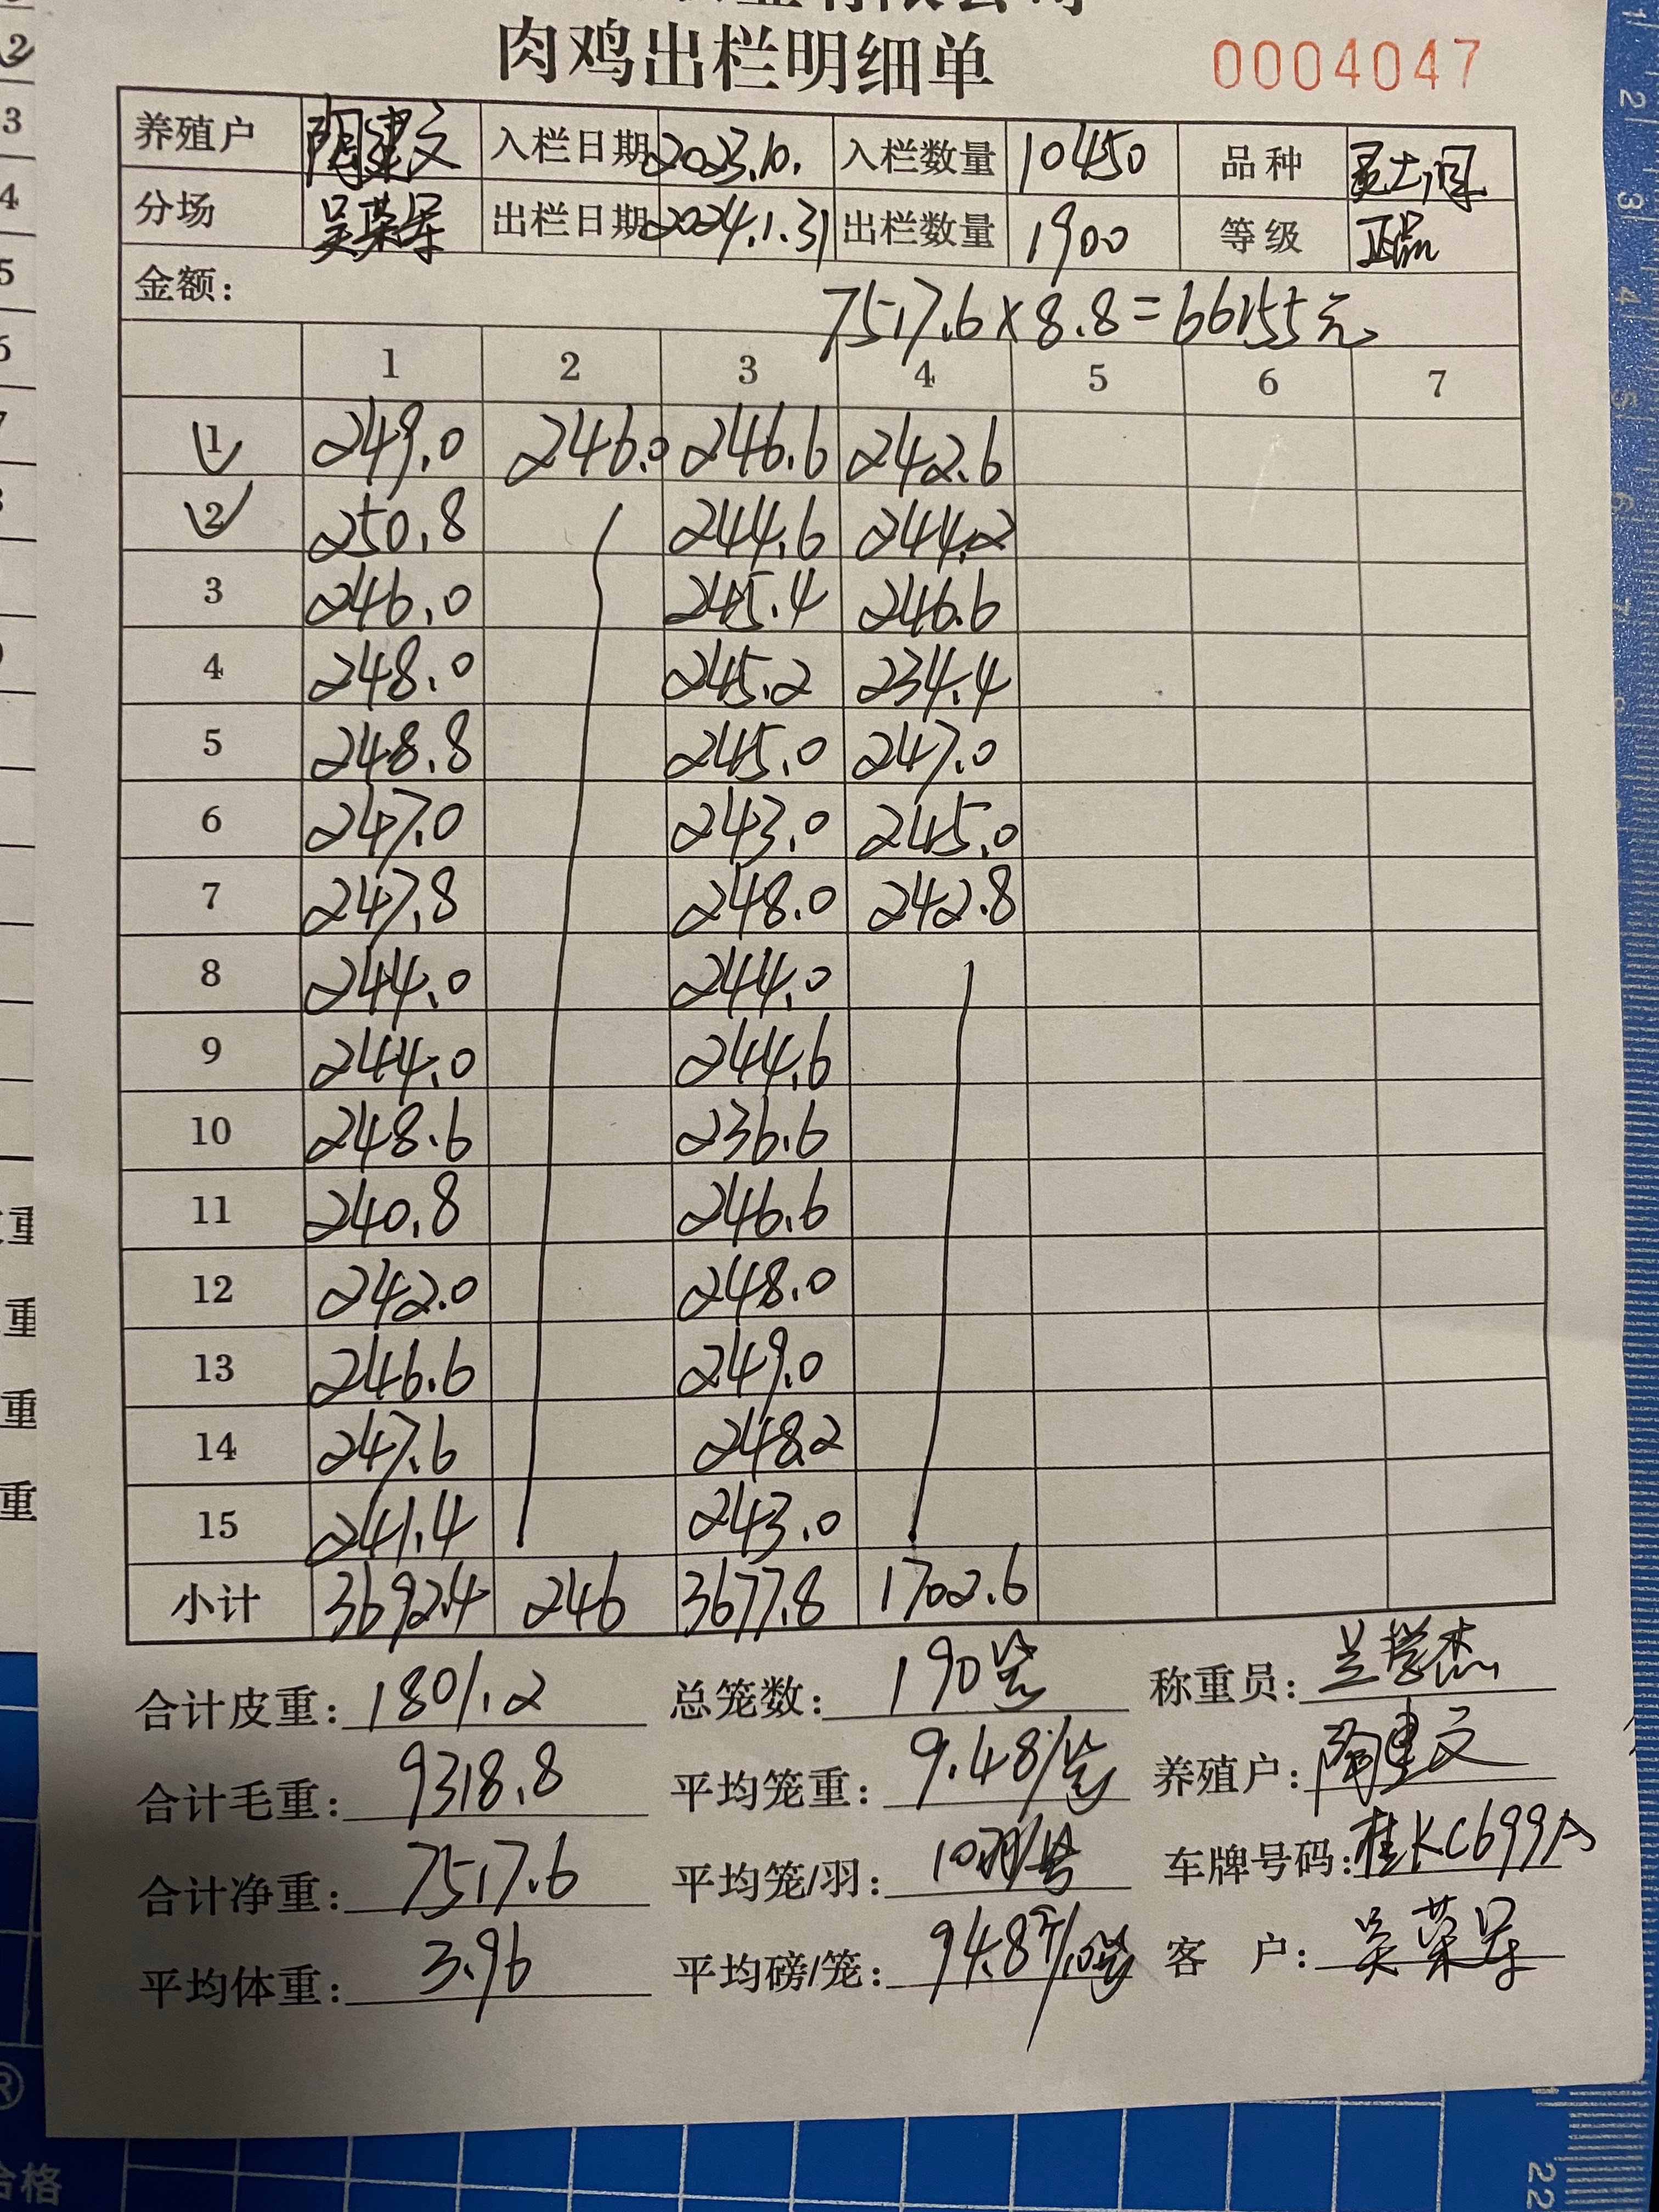 肉鸡出栏明细单 0004047
养殖户 陶建文 入栏日期 2023.10. 入栏数量 10450 品种
分场 吴荣军 出栏日期 2024.1.31 出栏数量 1900 等级 正品
金额: 7517.6×8.8=66155元
1 2 3 4 5 6 7
1 249.0 246.0 246.6 242.6
2 250.8 244.6 244.2
3 246.0 245.4 246.6
4 248.0 245.2 234.4
5 248.8 245.0 247.0
6 247.0 243.0 245.0
7 247.8 248.0 242.8
8 244.0 244.0
9 244.0 244.6
10 248.6 236.6
11 240.8 246.6
12 242.0 248.0
13 246.6 249.0
14 247.6 248.2
15 241.4 243.0
小计 3692.4 246 3677.8 1702.6
合计皮重: 1801.2 总笼数: 190笼 称重员: 兰学杰
合计毛重: 9318.8 平均笼重: 9.48/笼 养殖户: 陶建文
合计净重: 7517.6 平均笼/羽: 10羽/笼 车牌号码: 桂KC699A
平均体重: 3.96 平均磅/笼: 94.8斤/笼 客 户: 吴荣军